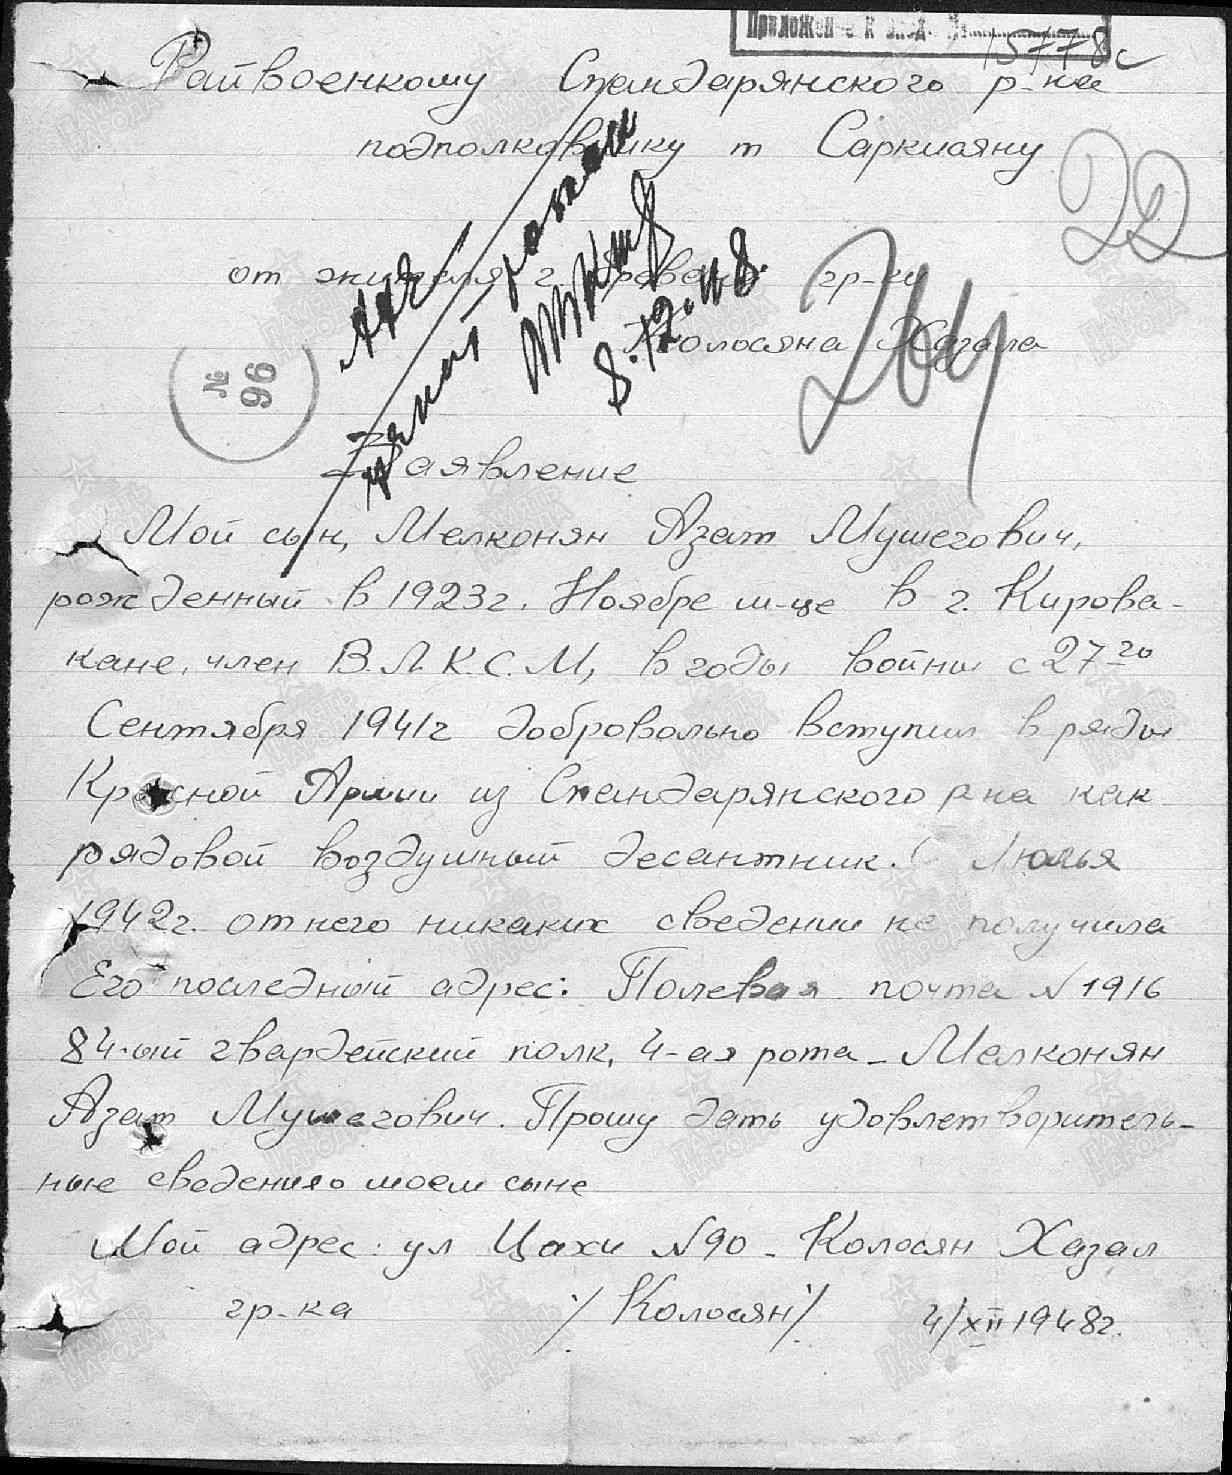 Приложение к вход. №
15778с
Райвоенкому Спандарянского р-на
подполковнику т Саркисяну
22
от жителя г. Еревана гр-ки
Колосяна Хазала
264
8.12.48.
№ 96
Заявление
Мой сын, Мелконян Азат Мушегович,
рожденный в 1923г. Ноябре м-це в г. Кирова-
кане, член В.Л.К.С.М, в годы войны с 27го
Сентября 1941г добровольно вступил в ряды
Красной Армии из Спандарянского р на как
рядовой воздушный десантник. С Июлья
1942г. от него никаких сведении не получила
Его последный адрес: Полевая почта N 1916
84-ый гвардейский полк, 4-ая рота - Мелконян
Азат Мушегович. Прошу дать удовлетворитель-
ные сведения о моем сыне
Мой адрес: ул Цахи N90 - Колосян Хазал
гр-ка /Колосян/ 4/XII 1948г.
ПАМЯТЬ НАРОДА